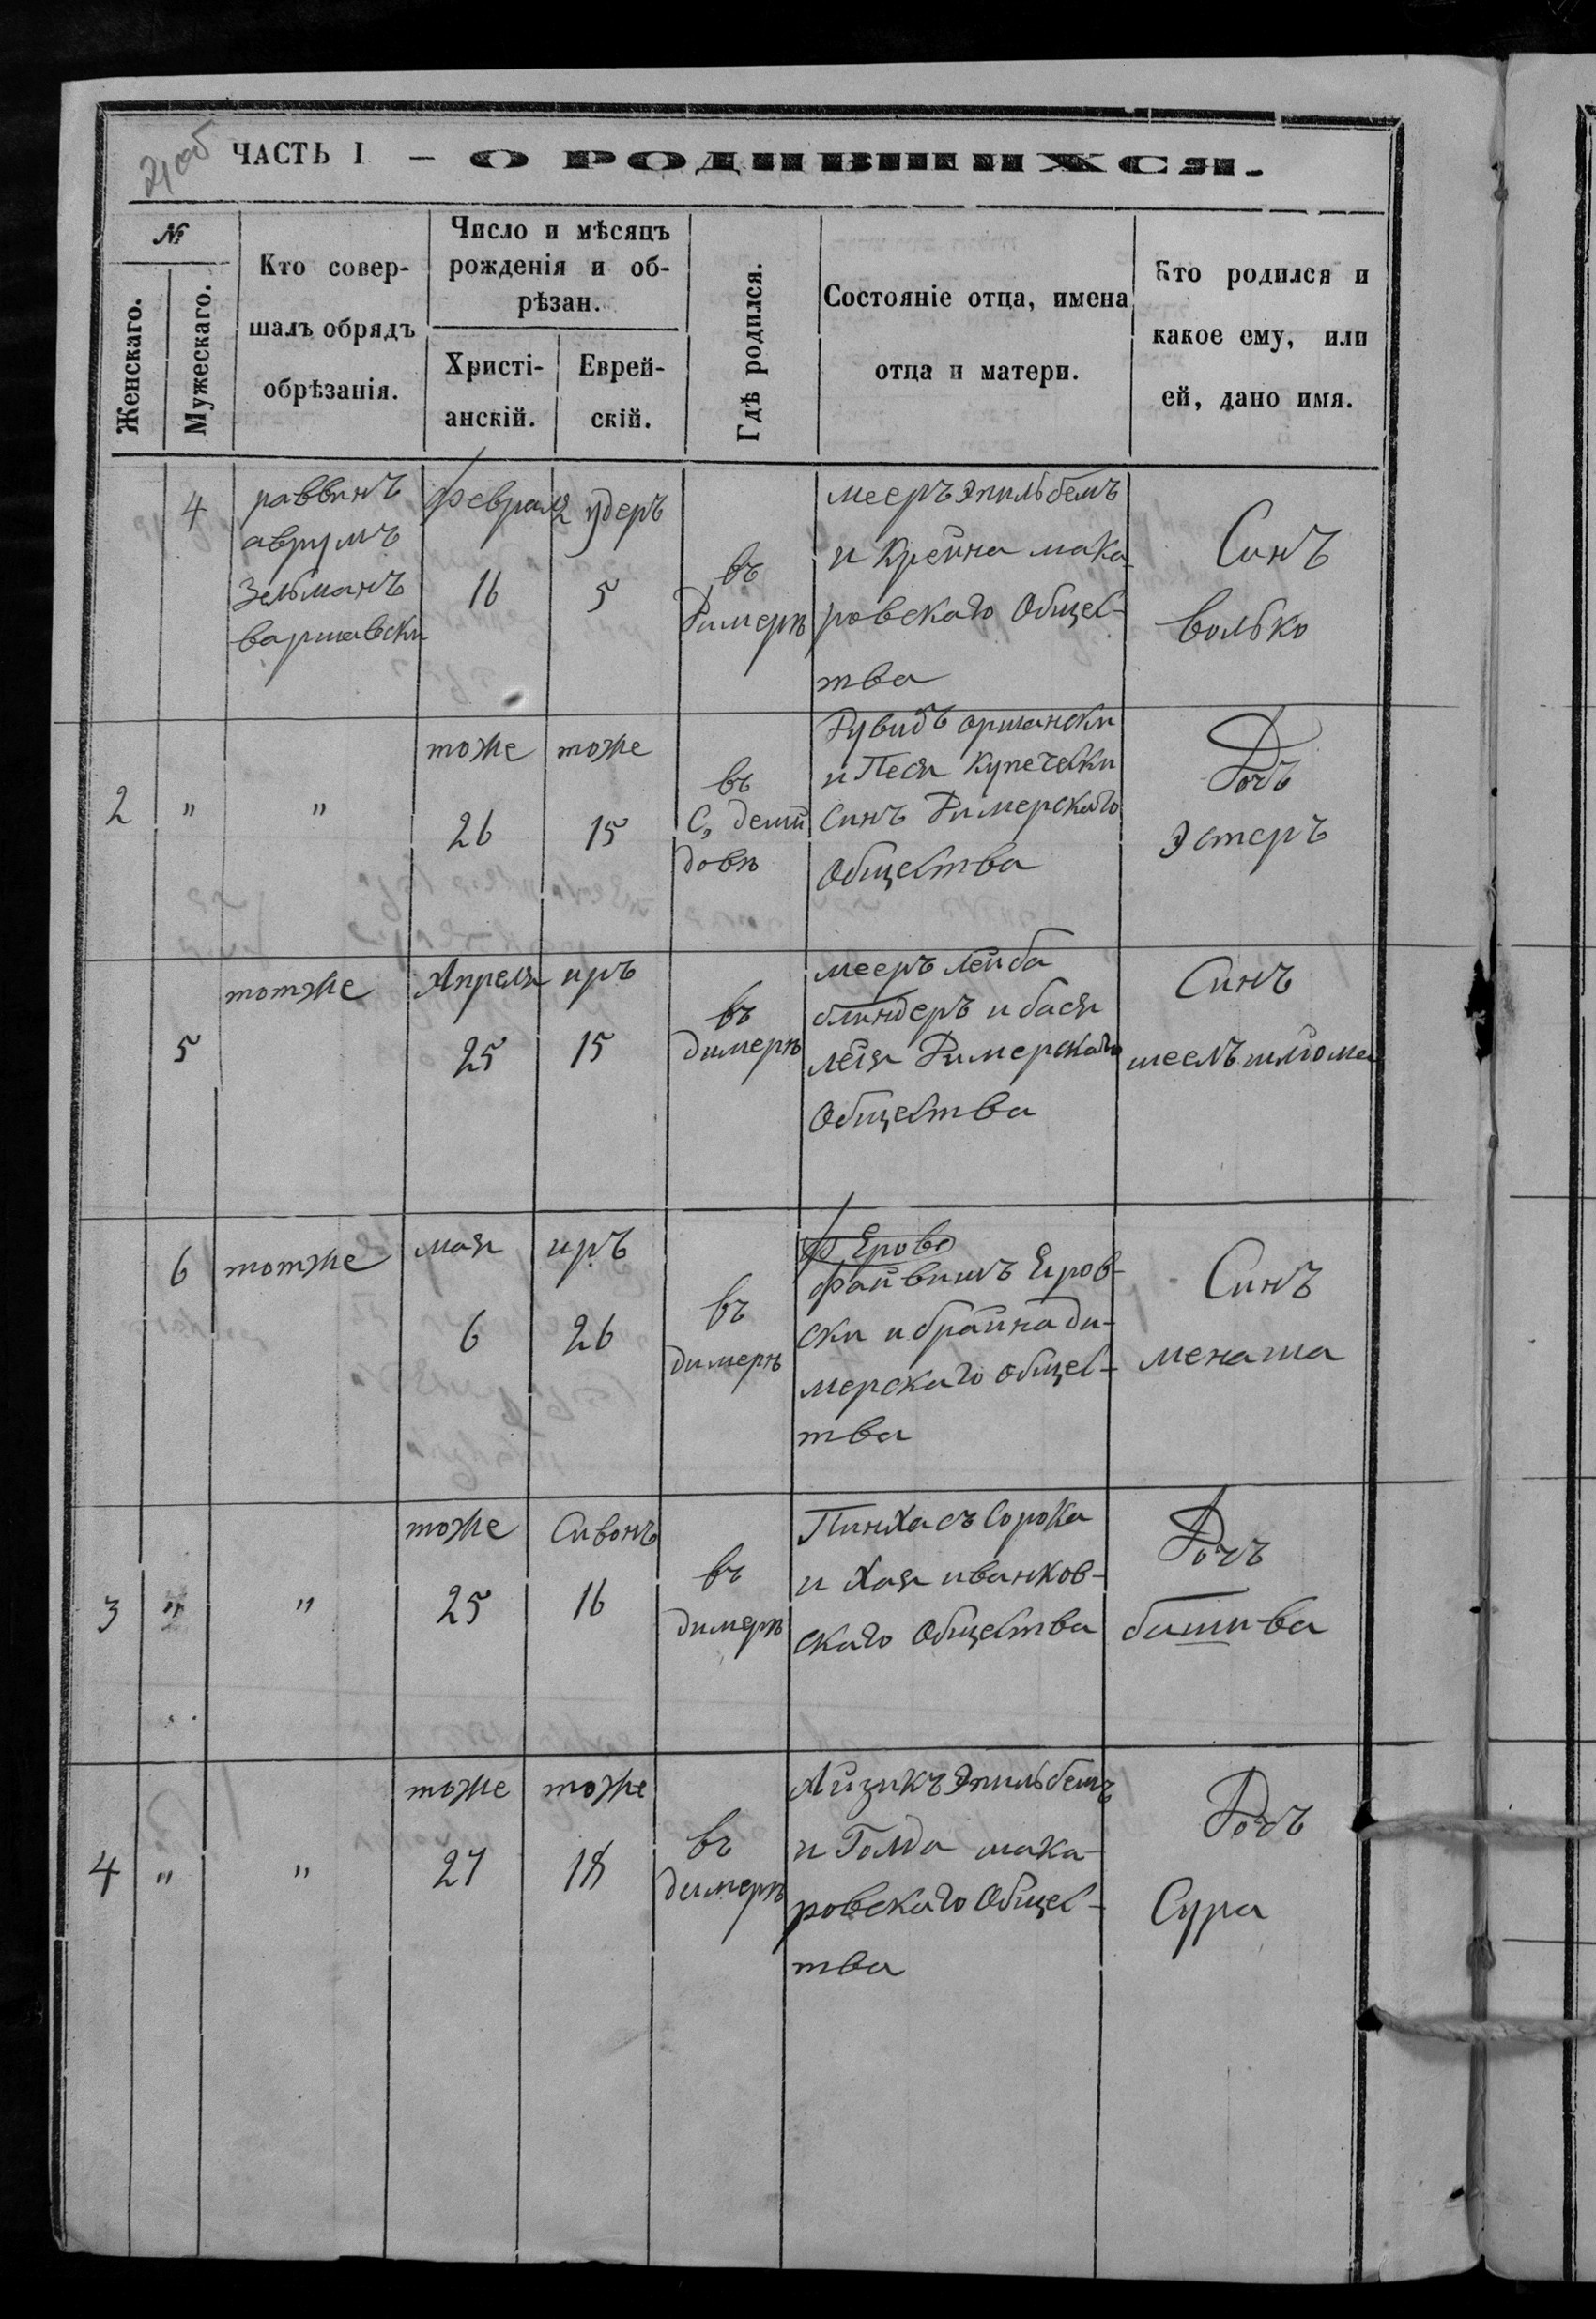 ЧАСТЬ I — О РОДИВШИХСЯ.
№
Женскаго.
Мужескаго.
Кто совер-
шалъ обрядъ
обрѣзанія.
Число и мѣсяцъ
рожденія и об-
рѣзан.
Христі-
анскій.
Еврей-
скій.
Гдѣ родился.
Состояніе отца, имена
отца и матери.
Кто родился и
какое ему, или
ей, дано имя.
4
раввинъ
аврумъ
Зельманъ
варшавски
февраля
16
удеръ
5
въ
Димерѣ
мееръ Эпильбемъ
и Крейна мака-
ровскаго Общес-
тва
Синъ
волько
2 " "
тоже
26
тоже
15
въ
С, деми
довѣ
Рувинъ оршански
и Песя Купечески
Синъ Димерскаго
Общества
Дочъ
Эстеръ
5
тотже
Апреля
25
иръ
15
въ
димерѣ
мееръ лейба
блиндеръ и бася
лея Димерскаго
Общества
Синъ
шеелъ шлюма
6
тотже
мая
6
иръ
26
въ
димерѣ
ф Ерово
файвишъ Еров-
ски и брайна ди-
мерскаго общес-
тва
Синъ
менаша
3 " "
тоже
25
Сивонъ
16
въ
димерѣ
Пинхасъ Сорока
и Хая иванков-
скаго Общества
Дочъ
башива
4 " "
тоже
27
тоже
18
въ
димерѣ
Айзикъ Эпильбемъ
и Голда мака-
ровскаго Общес-
тва
Дочъ
Сура